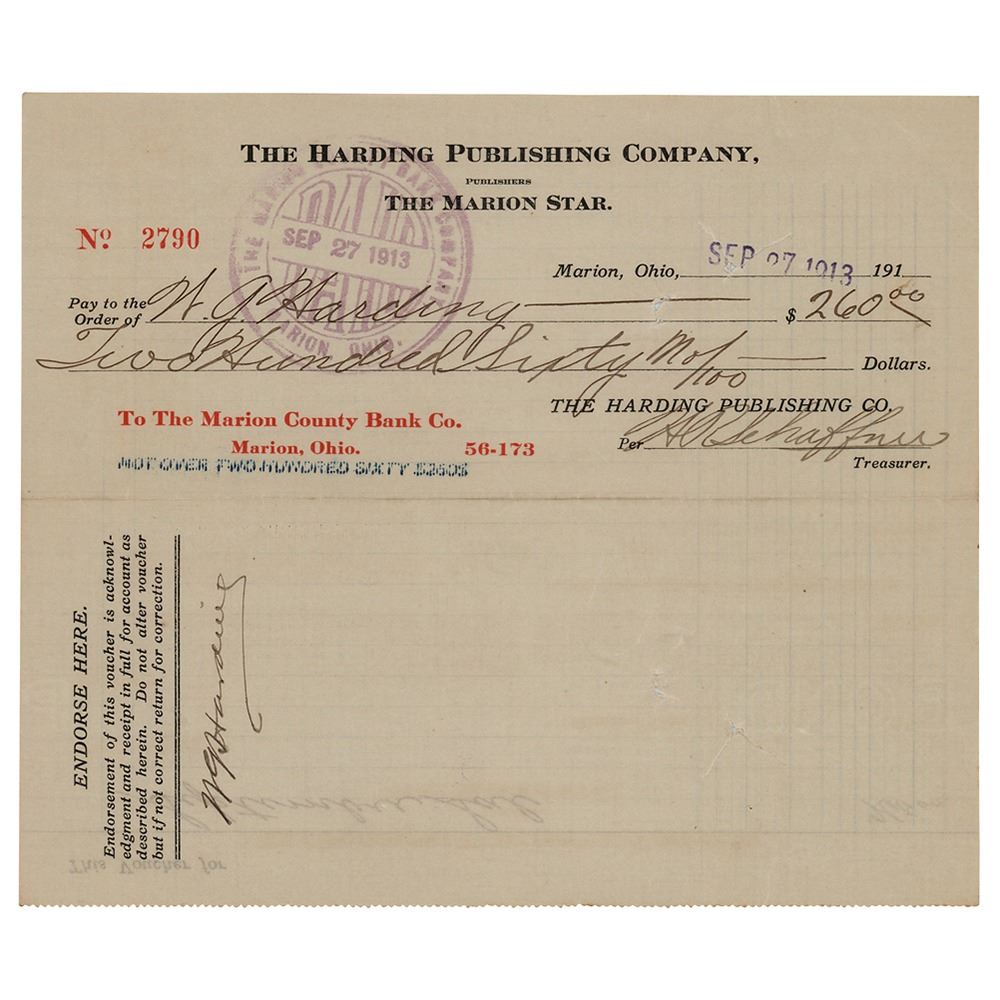 THE HARDING PUBLISHING COMPANY,
PUBLISHERS
THE MARION STAR.
No 2790
THE MARION COUNTY BANK COMPANY
PAID
SEP 27 1913
MARION, OHIO.
Marion, Ohio, SEP 27 1913 191
Pay to the Order of W. G Harding $ 260 00
Two Hundred Sixty No/100 Dollars.
THE HARDING PUBLISHING CO.
To The Marion County Bank Co.
Marion, Ohio. 56-173
Per H A Schaffner
Treasurer.
NOT OVER TWO HUNDRED SIXTY $260$
ENDORSE HERE.
Endorsement of this voucher is acknowl-
edgment and receipt in full for account as
described herein. Do not alter voucher
but if not correct return for correction.
W G Harding
This Voucher for